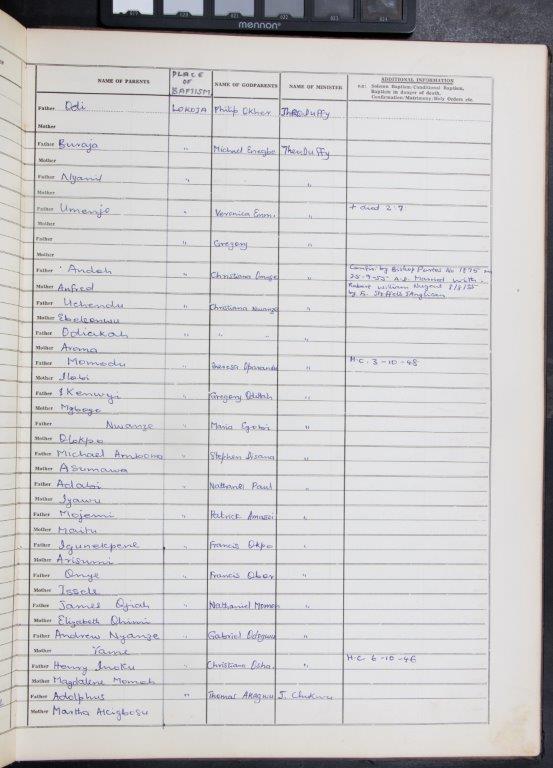 mennon
NAME OF PARENTS
PLACE OF BAPTISM
NAME OF GODPARENTS
NAME OF MINISTER
ADDITIONAL INFORMATION
e.g: Solemn Baptism/Conditional Baptism,
Baptism in danger of death,
Confirmation/Matrimony/Holy Orders etc.
Father Odi LOKOJA Philip Okher Duffy
Mother
Father Buraja " Michael Enegbe Theo Duffy
Mother
Father Nyanil " "
Mother
Father Umenjo " Veronica Enm. " + died 2.7
Mother
Father " Gregory "
Mother
Father Andoh " Christiana " Confir. by Bishop No 1875 on
25-9-55 A.D. Married with
Mother Anfred Robert William Nugent 8/8/55
Father Uchendu " Christiana Nwanze " by F. Anglican
Mother Ebeleonwu
Father Odiakah " " " "
Mother Aroma
Father Momodu " " H.C. 3-10-48
Mother Ilobi
Father Ikenwyi " Gregory Odittah "
Mother Mgbogo
Father Nwanze " Maria Egobi "
Mother Olokpo
Father Michael " Stephen Disana "
Mother Asumawa
Father Adabi " Nathaniel Paul "
Mother Iyawu
Father Mojemi " Patrick Amaszi "
Mother Maitu
Father Igunekpene " Francis Okpo "
Mother Arisumi
Father Onye " Francis Obor "
Mother Issele
Father James Ojiah " Nathaniel Momoh "
Mother Elizabeth Ohimi
Father Andrew Nyanze " Gabriel Odogwu "
Mother Yame
Father Henry Inoku " Christiana Disha. " H.C. 6-10-46
Mother Magdalene Momoh
Father Adolphus " Thomas Akagwu J. Chukwu
Mother Martha Akigbosu